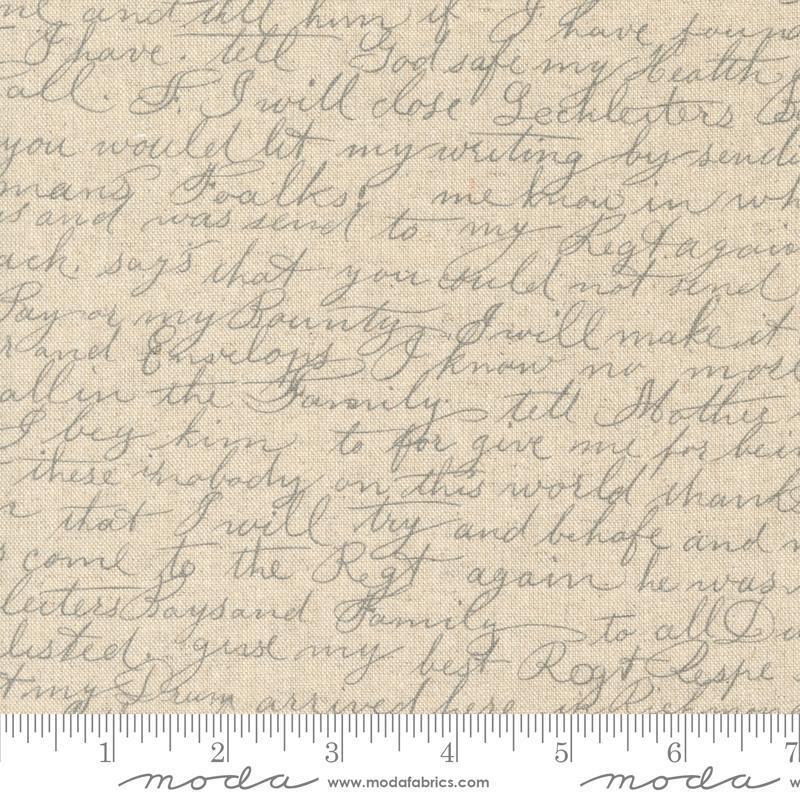 me and tell him if I have found
I have. tell God safe my Health
all. F. I will close Lechleiters
you would let my writing by sendi
mans Foalks, me know in wh
is and was send to my Regt. again
ack. says that you could not send
Pay or my Bounty I will make it
r and Envelops I know no more
all in the Family tell Mother
I beg him to for give me for bein
these is nobody on this world thank
that I will try and behafe and
s come to the Regt again he was
leiters says and Family to all Di
listed. give my best Regt Respe
t my Drum arrived here in Richmon
1 2 3 4 5 6 7
moda www.modafabrics.com moda w